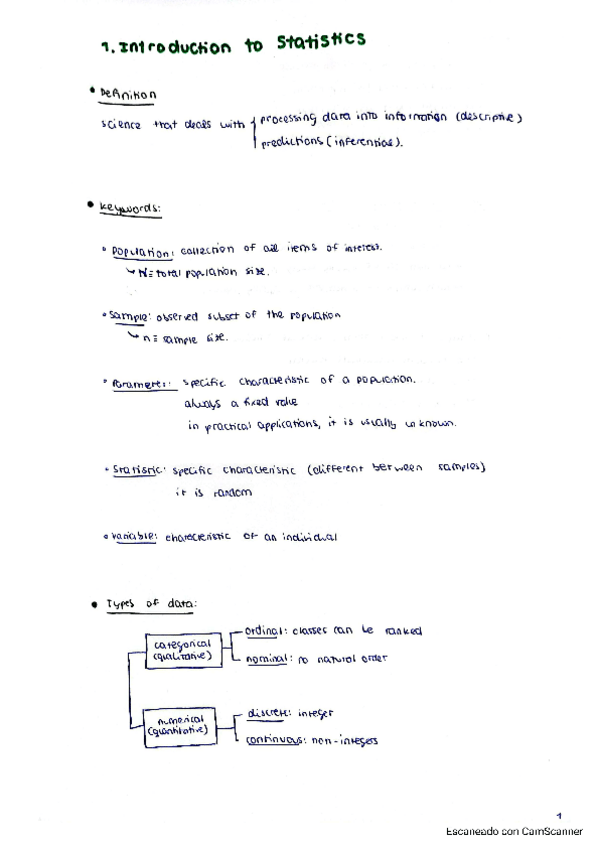 1. Introduction to Statistics
• Definition
science that deals with { processing data into information (descriptive)
predictions (inferential).
• Keywords:
• Population: collection of all items of interest.
↳ N ≡ total population size.
• Sample: observed subset of the population
↳ n ≡ sample size.
• Parameter: specific characteristic of a population.
always a fixed value
in practical applications, it is usually unknown.
• Statistic: specific characteristic (different between samples)
it is random
• Variable: characteristic of an individual
• Types of data:
categorical
(qualitative)
ordinal: classes can be ranked
nominal: no natural order
numerical
(quantitative)
discrete: integer
continuous: non-integers
1
Escaneado con CamScanner